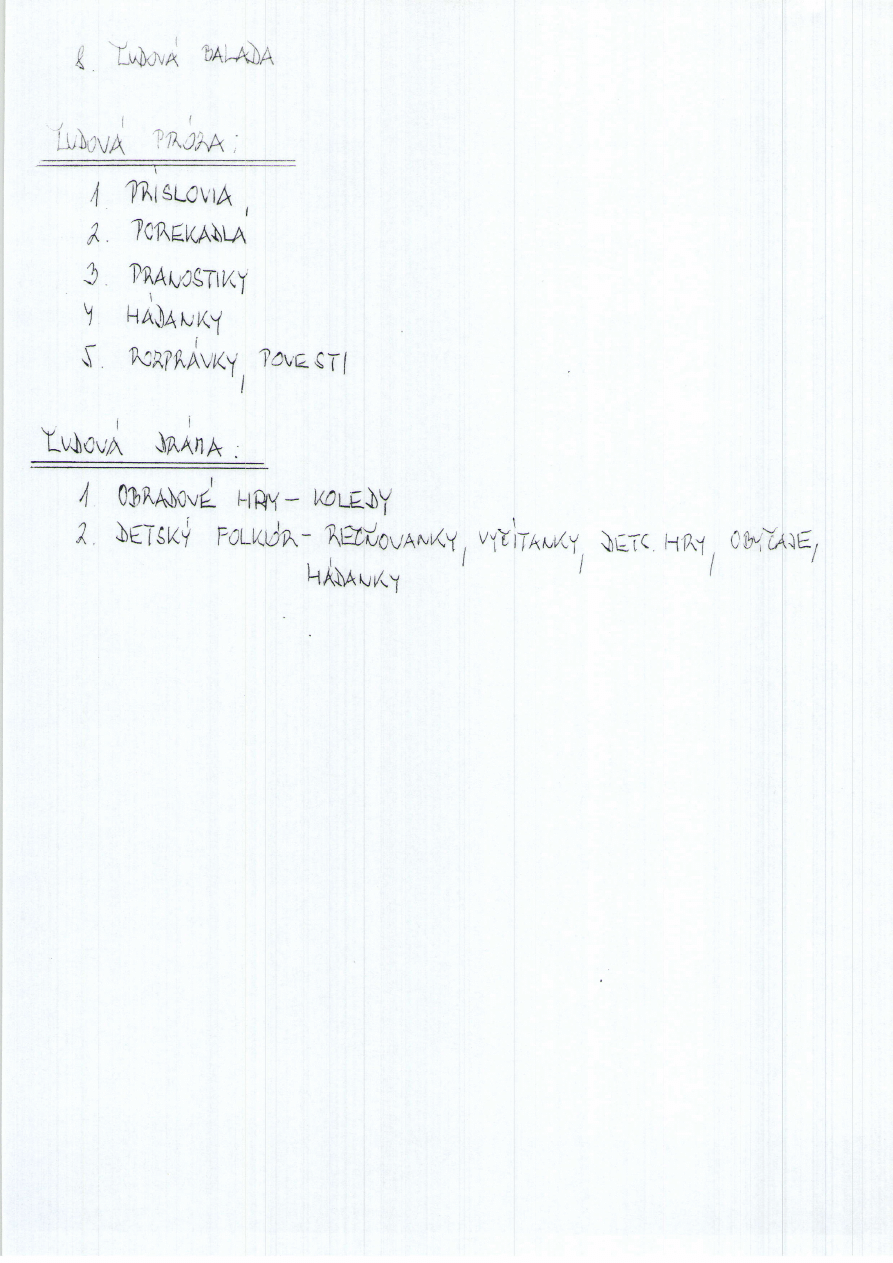 8. ĽUDOVÁ BALADA
ĽUDOVÁ PRÓZA:
1 PRÍSLOVIA,
2. POREKADLÁ
3. PRANOSTIKY
4. HÁDANKY
5. ROZPRÁVKY, POVESTI
ĽUDOVÁ DRÁMA:
1 OBRADOVÉ HRY - KOLEDY
2. DETSKÝ FOLKLÓR - REČŇOVANKY, VYČÍTANKY, DETS. HRY, OBYČAJE,
HÁDANKY